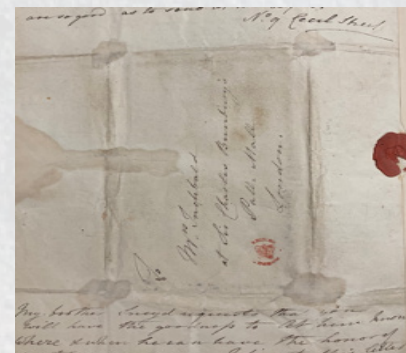 are so good as to send
No 9 Cecil Street
To
Mrs Inchbald
at Sir Charles Bunbury's
Pall Mall
London.
My brother requests that you
will have the goodness to let him know
where & when he can have the honor of